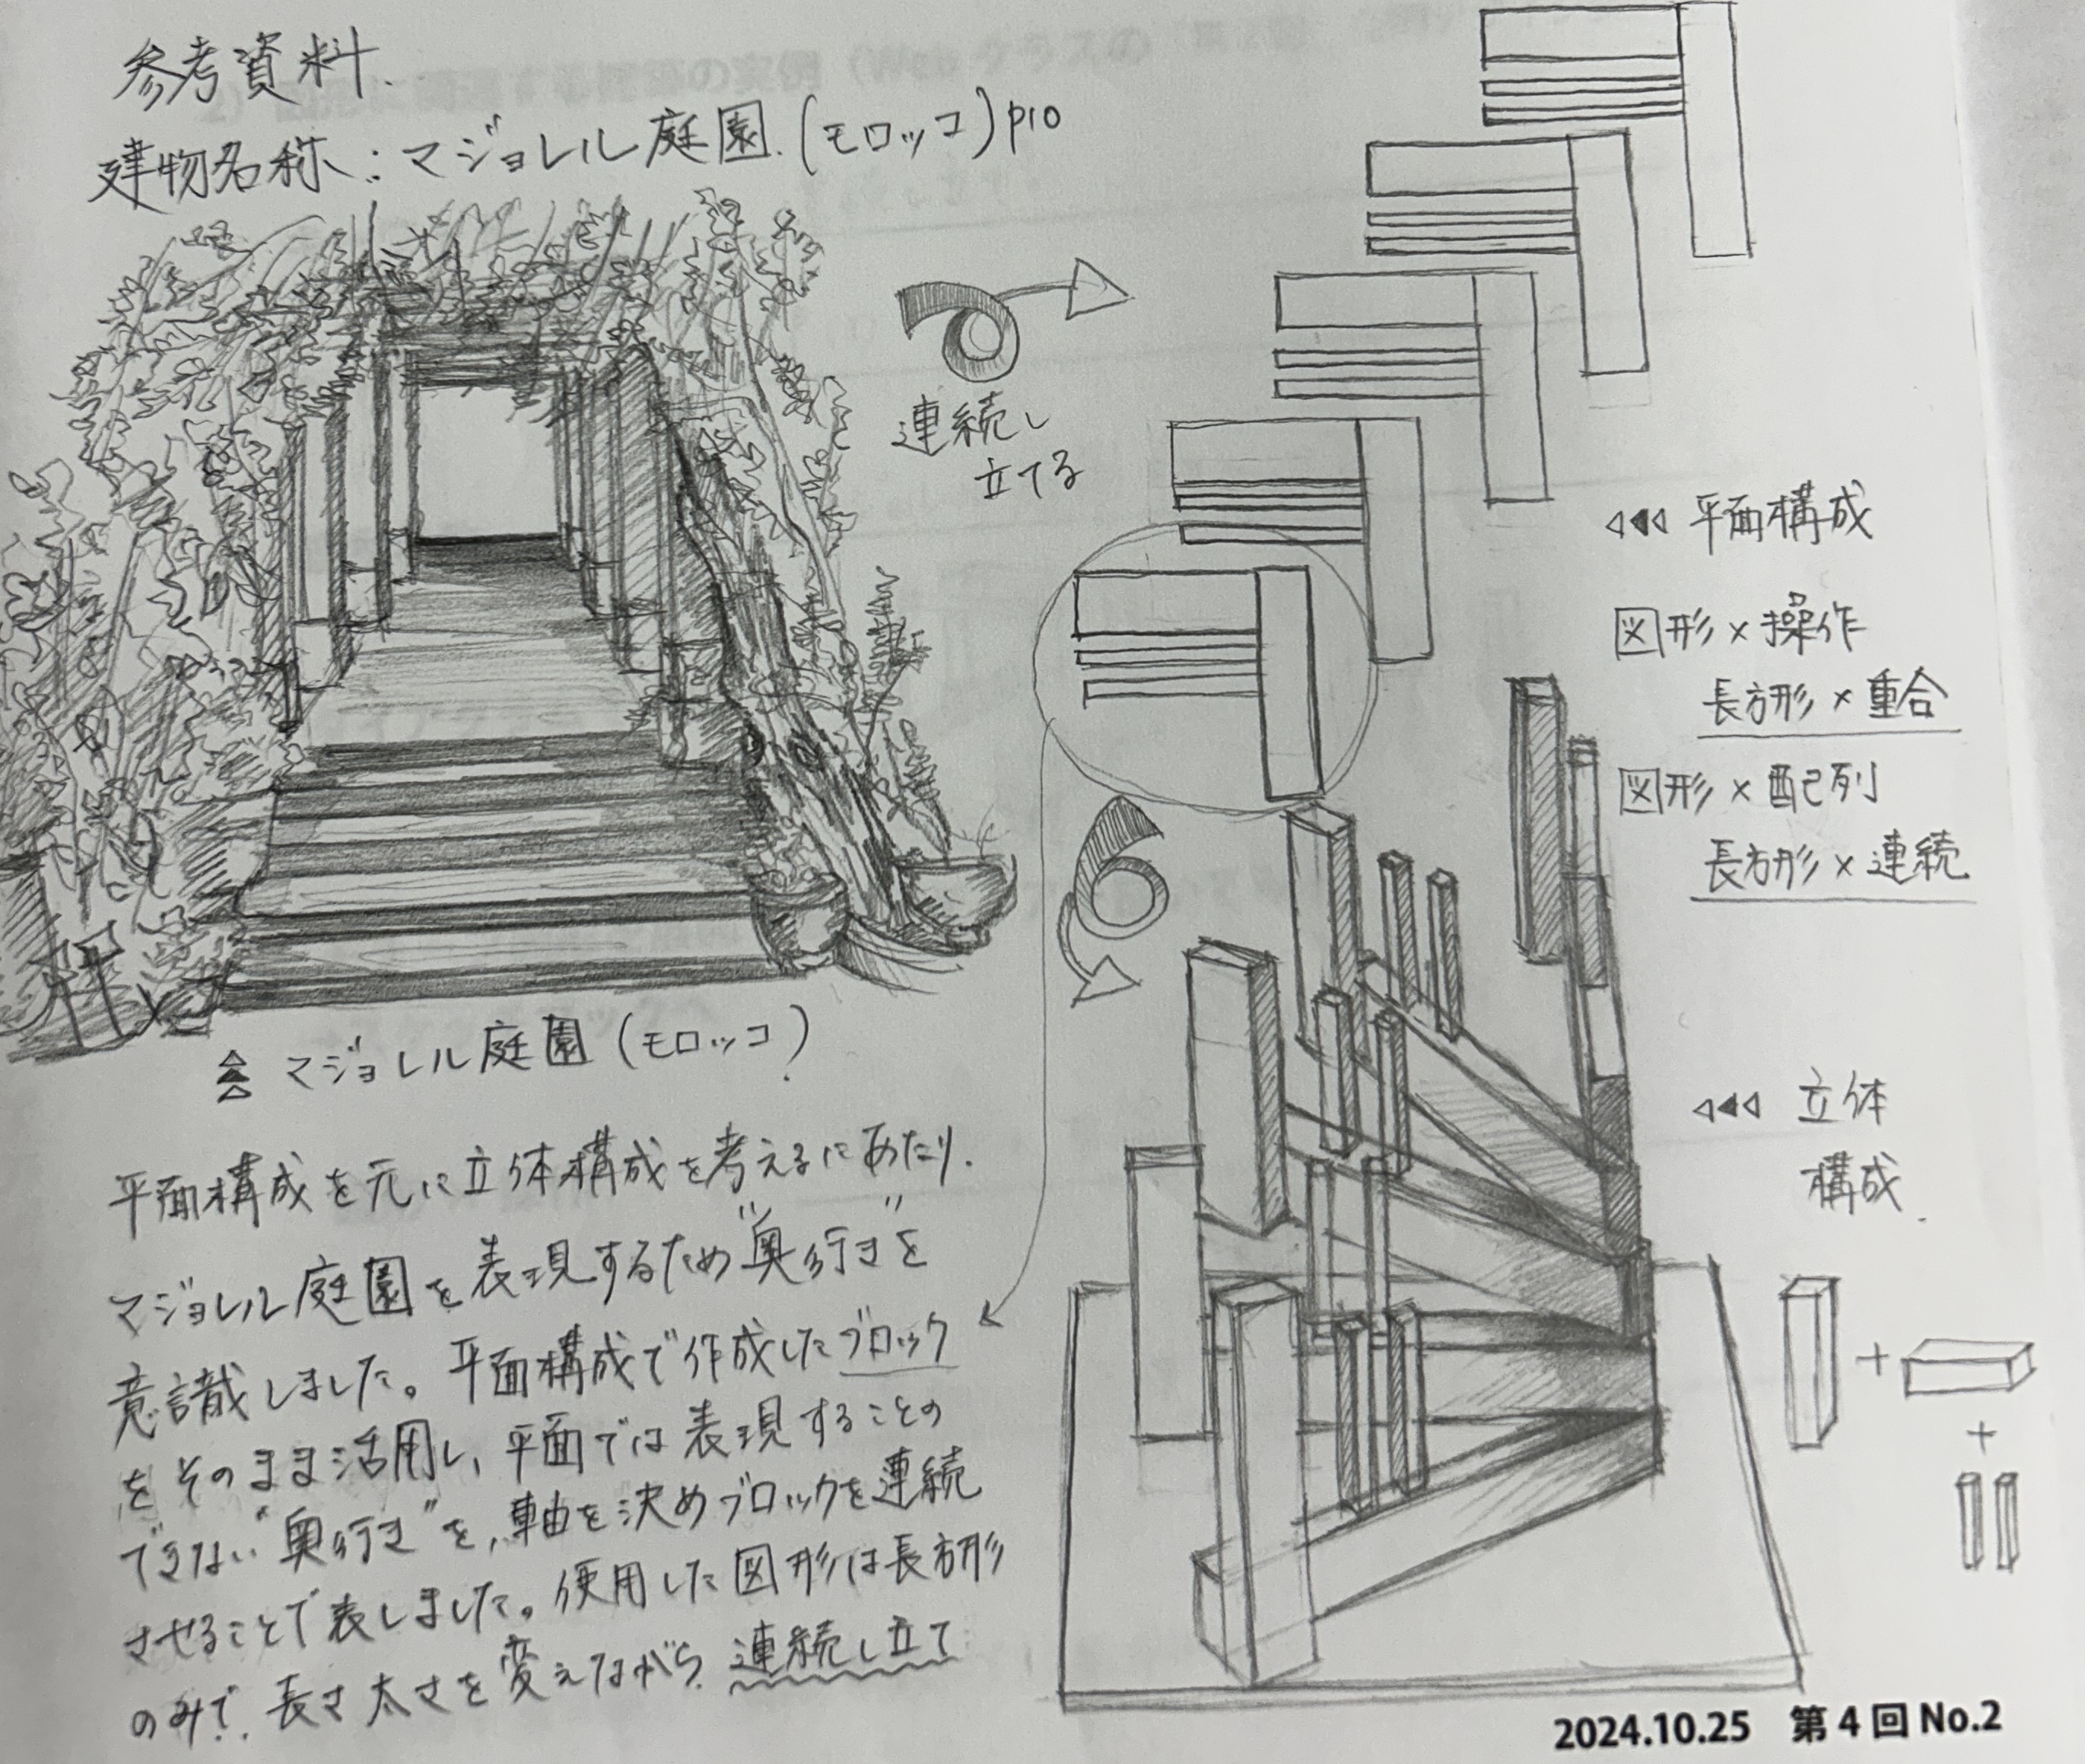 参考資料.
建物名称：マジョレル庭園.(モロッコ) P10
連続し
立てる
平面構成
図形×操作
長方形×重合
図形×配列
長方形×連続
マジョレル庭園（モロッコ）
立体
構成.
平面構成を元に立体構成を考えるにあたり.
マジョレル庭園を表現するため"奥行き"を
意識しました。平面構成で作成したブロック
をそのまま活用し、平面では表現することの
できない"奥行き"を、軸を決めブロックを連続
させることで表しました。使用した図形は長方形
のみで、長さ太さを変えながら連続し立て
+
+
2024.10.25 第4回 No.2